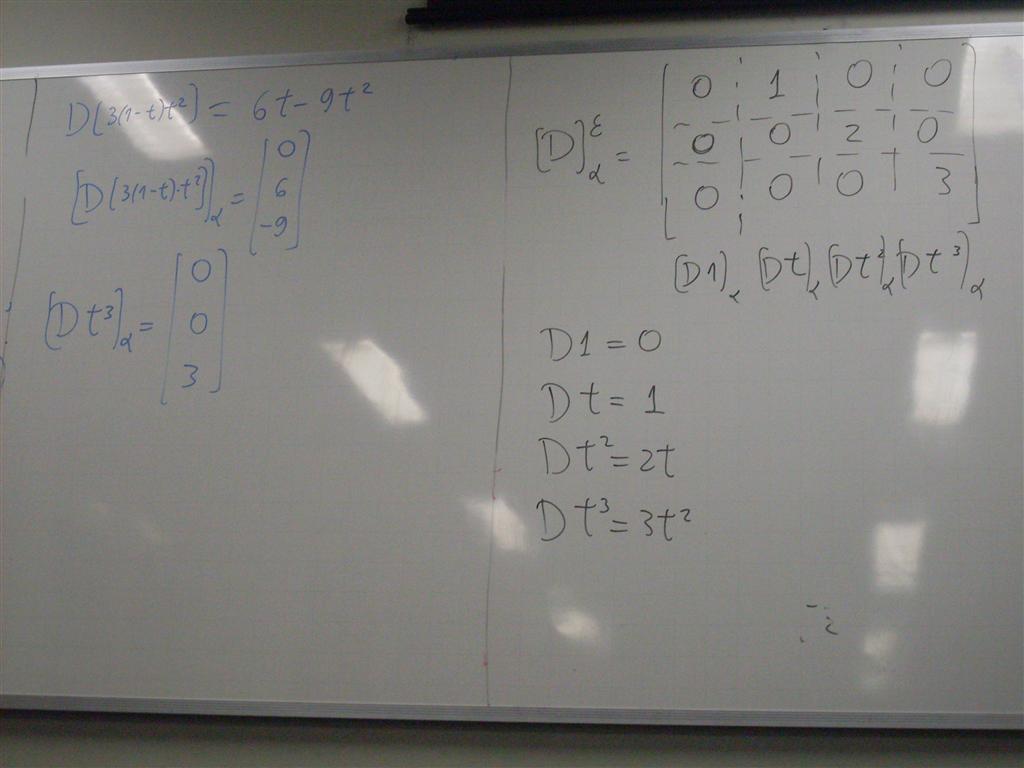 D[3(1-t)t²] = 6t - 9t²
[D[3(1-t)·t²]]α = [0 6 -9]
[Dt³]α = [0 0 3]
[D]αᵋ = [0 1 0 0
0 0 2 0
0 0 0 3]
[D1]α [Dt]α [Dt²]α [Dt³]α
D1 = 0
Dt = 1
Dt² = 2t
Dt³ = 3t²